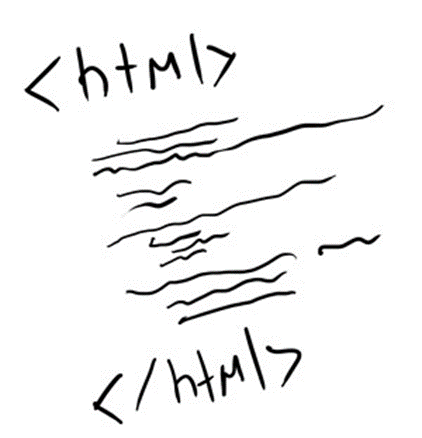 <html>
</html>